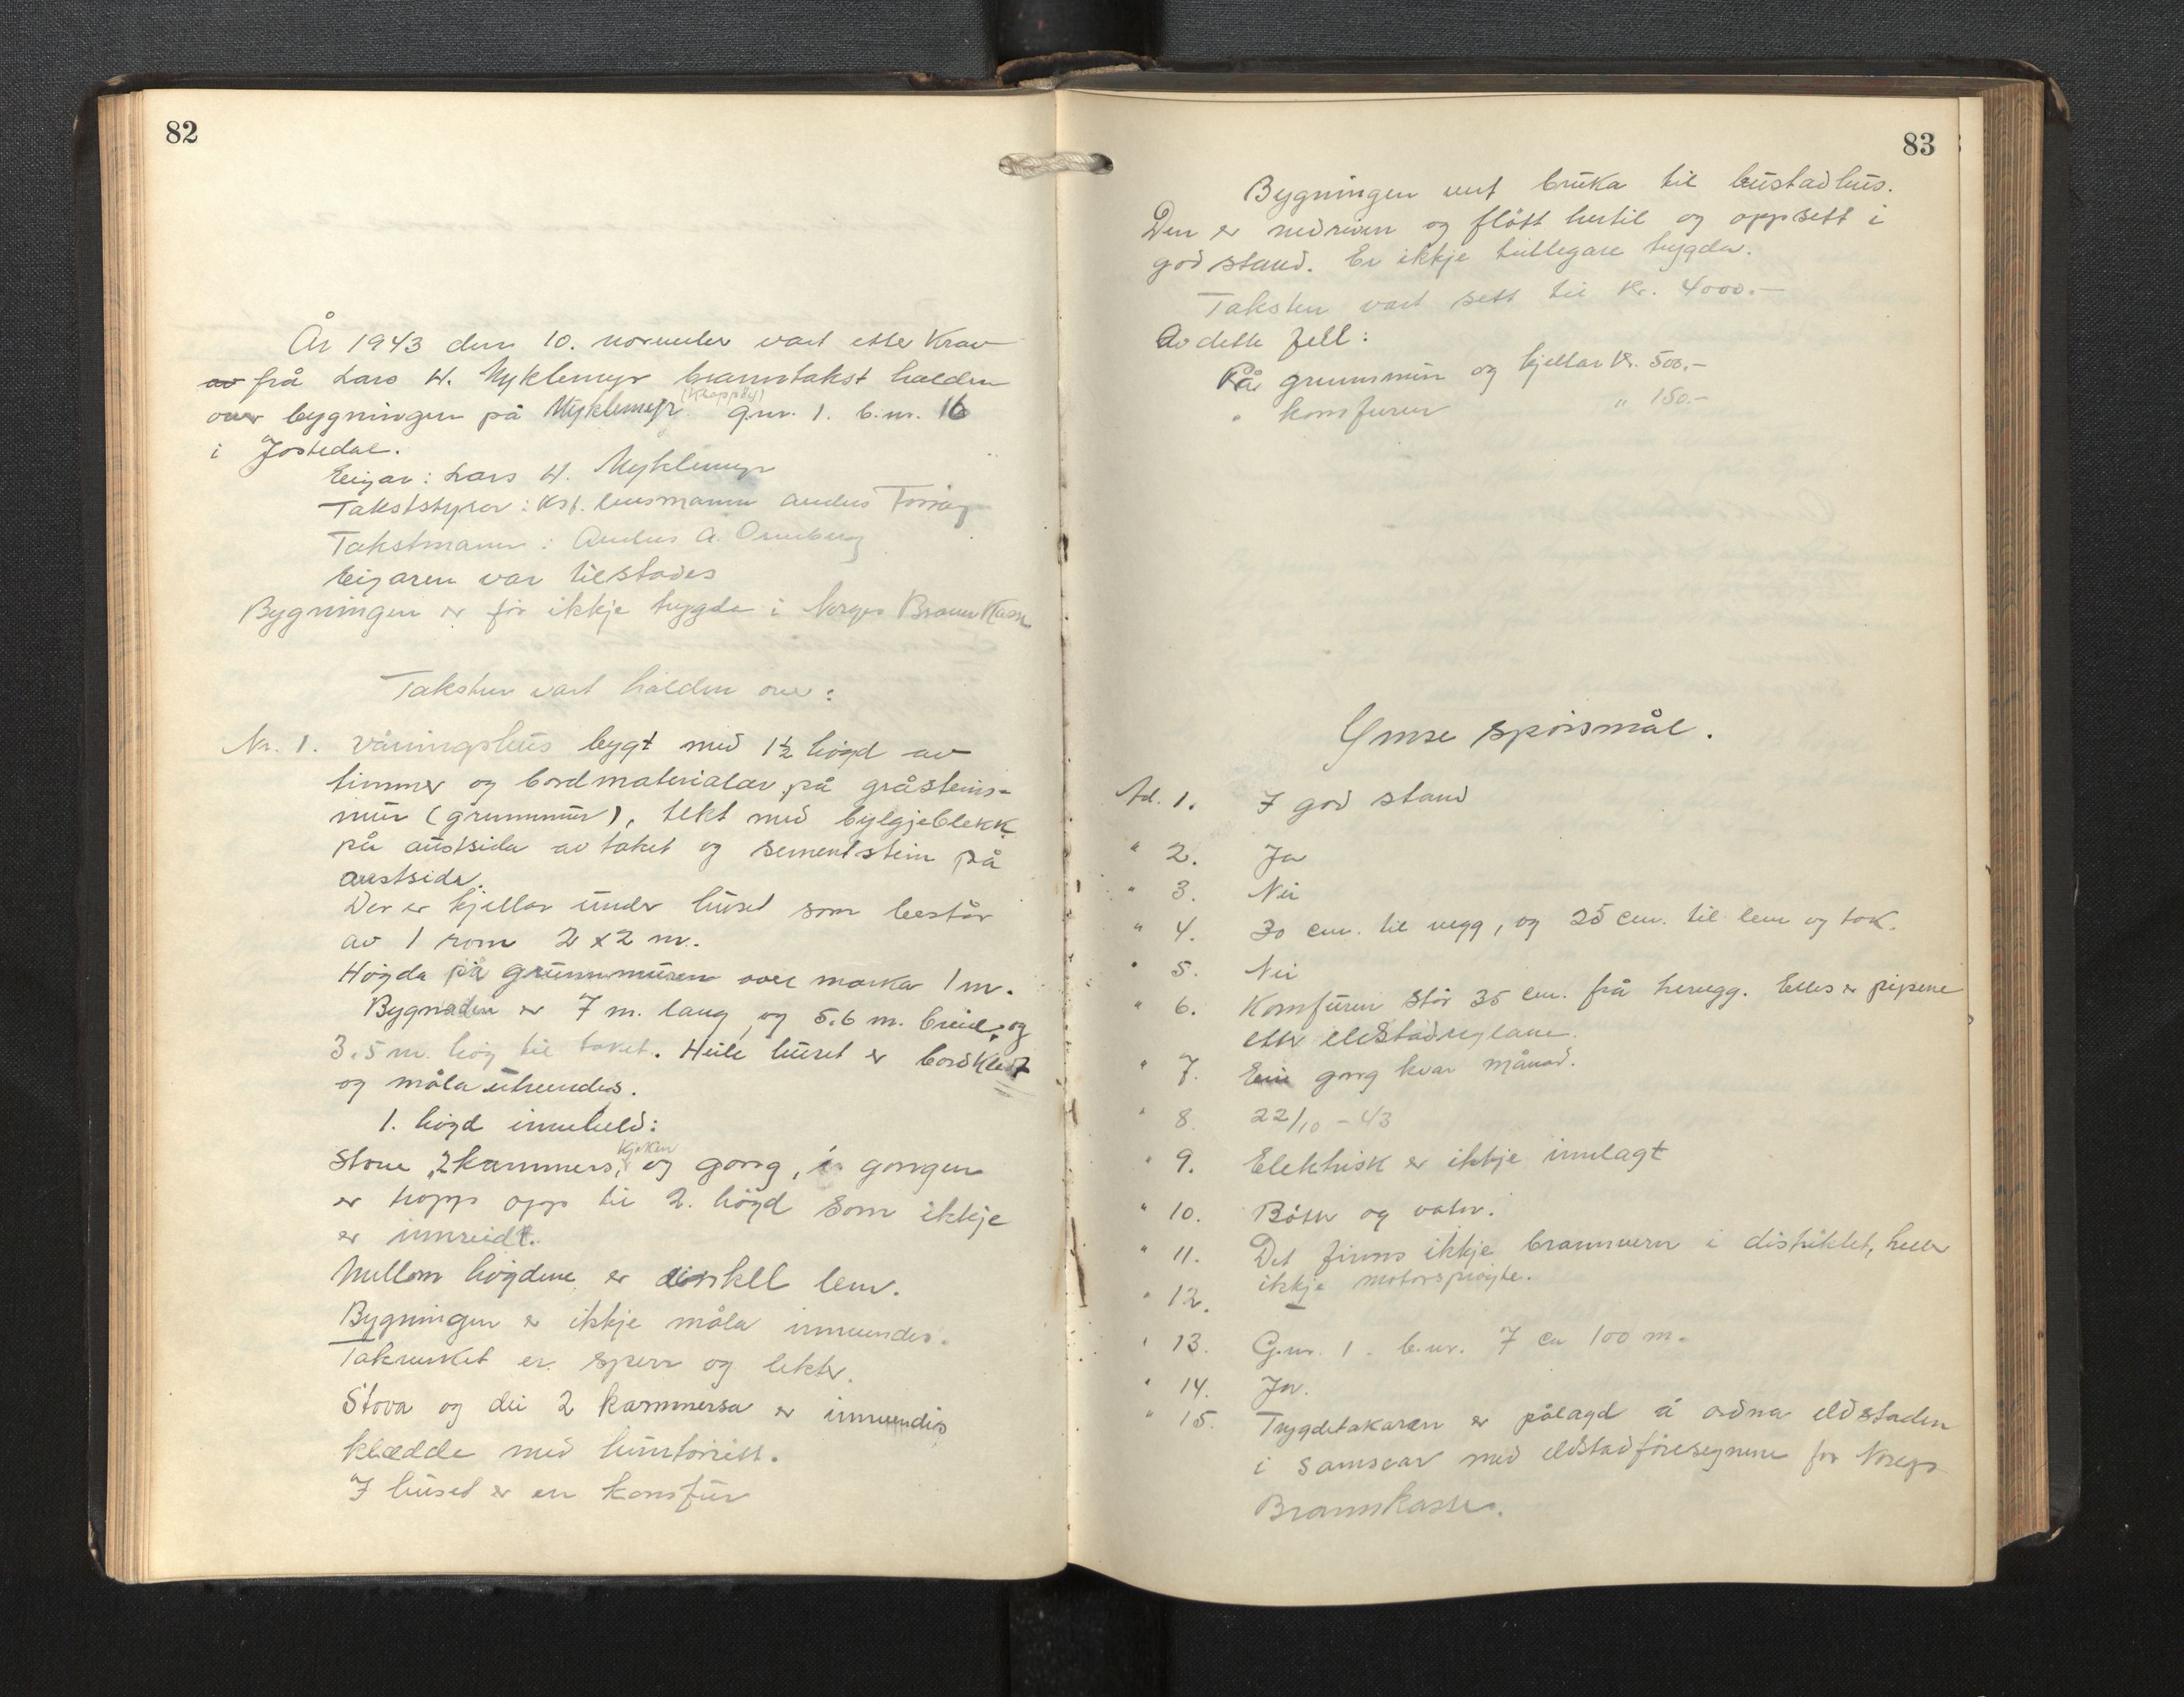 82
År 1943 den 10. november vart etter krav
av frå Lars H. Myklemyr branntakst halden
over bygningen på Myklemyr (Kroppøy) gnr. 1. b.nr. 16
i Jostedal.
Eigar: Lars H. Myklemyr
Takststyrar: Kst. lensmann Anders
Takstmann: Anders A. Ormberg
Eigaren var tilstades
Bygningen er før ikkje trygda i Norges Brannkasse
Taksten vart halden over:
Nr. 1. Våningshus bygt med 1½ høgd av
timmer og bordmaterialar, på gråsteins-
mur (grunnmur), tekt med bylgjeblekk
på austsida av taket og sementstein på
austsida.
Der er kjellar under huset som består
av 1 rom 2 x 2 m.
Høgda på grunnmuren over marka 1 m.
Bygnaden er 7 m. lang, og 5.6 m. breid, og
3.5 m. høg til taket. Heile huset er bordkledt
og måla utvendes.
1. høgd inneheld:
Stove, 2 kammers, kjøken og gong, i gongen
er tropp opp til 2. høgd som ikkje
er innreidt.
Mellom høgdene er enkelt lem.
Bygningen er ikkje måla innvendes.
Takverket er sperr og lekter.
Stova og dei 2 kammersa er innvendes
klædde med
I huset er en komfur
83
Bygningen vert bruka til bustadhus.
Den er nedriven og fløtt hertil og oppsett i
god stand. Er ikkje tidlegare trygda.
Taksten vart sett til kr. 4000.—
Av dette fell:
På grunnmur og kjellar kr. 500.—
" komfuren " 150.—
Ymse spørsmål.
Ad. 1. I god stand
" 2. Ja
" 3. Nei
" 4. 30 cm. til vegg, og 25 cm. til lem og tak.
" 5. Nei
" 6. Komfuren står 35 cm. frå trevegg. Elles er pipene
etter eldstadreglane.
" 7. Ein gong kvar månad.
" 8. 22/10 - 43
" 9. Elektrisk er ikkje innlagt
" 10. Bøtter og vatn.
" 11. Det finns ikkje brannvern i distriktet, heller
ikkje motorsprøyte.
" 12. —
" 13. G.nr. 1. b.nr. 7 ca 100 m.
" 14. Ja.
" 15. Trygdetakaren er pålagd å ordna eldstaden
i samsvar med eldstadføresegnene for Noregs
Brannkasse.